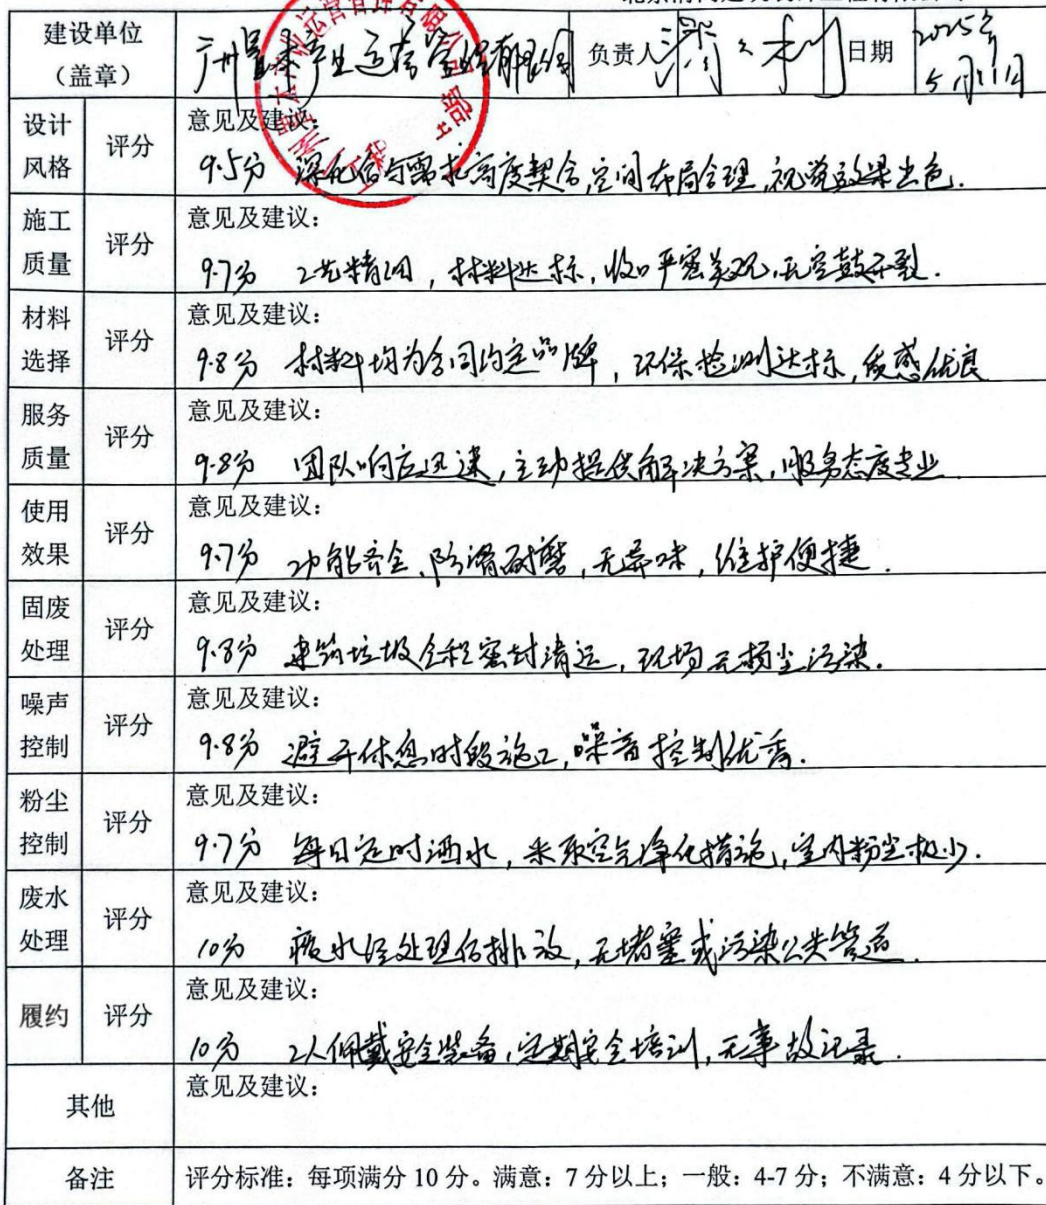 建设单位
（盖章）
负责人
日期
2025年
5月11日
设计
风格
评分
意见及建议：
9.5分 深化后与需求高度契合，空间布局合理，视觉效果出色.
施工
质量
评分
意见及建议：
9.7分 工艺精细，材料达标，收口严密美观，无空鼓开裂.
材料
选择
评分
意见及建议：
9.8分 材料均为合同约定品牌，环保检测达标，质感优良
服务
质量
评分
意见及建议：
9.8分 团队响应迅速，主动提供解决方案，服务态度专业
使用
效果
评分
意见及建议：
9.7分 功能齐全、防滑耐磨，无异味，维护便捷.
固废
处理
评分
意见及建议：
9.8分 建筑垃圾全程密封清运，现场无扬尘污染.
噪声
控制
评分
意见及建议：
9.8分 避开休息时段施工，噪音控制优秀.
粉尘
控制
评分
意见及建议：
9.7分 每日定时洒水，采取空气净化措施，室内粉尘极少.
废水
处理
评分
意见及建议：
10分 废水经处理后排放，无堵塞或污染公共管道.
履约
评分
意见及建议：
10分 工人佩戴安全装备，定期安全培训，无事故记录.
其他
意见及建议：
备注
评分标准：每项满分 10 分。满意：7 分以上；一般：4-7 分；不满意：4 分以下。